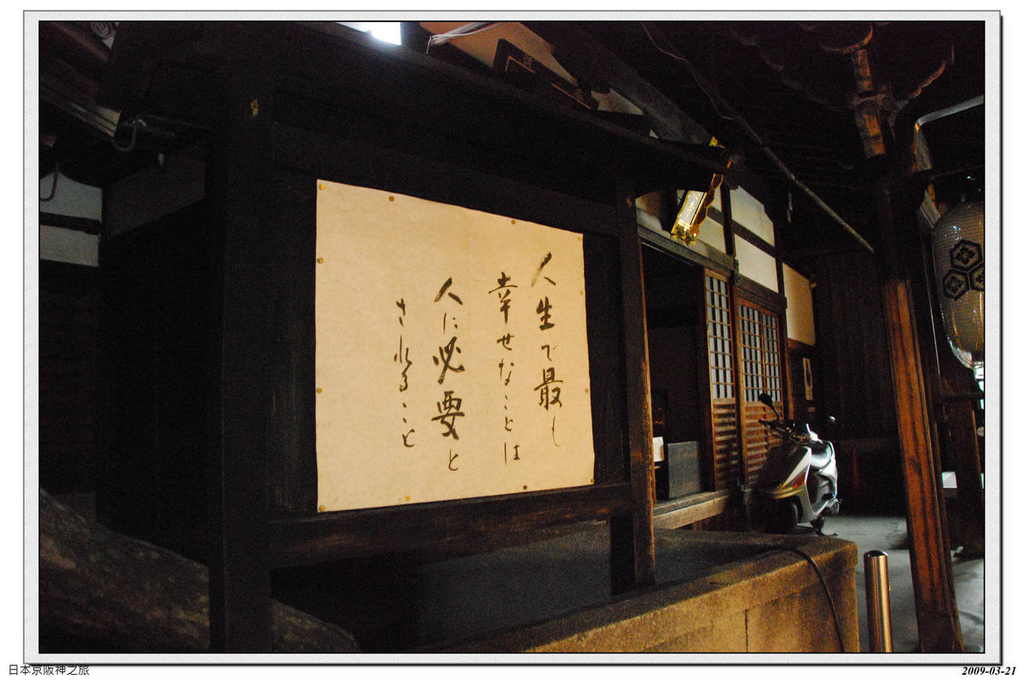 人生で最も
幸せなことは
人に必要と
されること
日本京阪神之旅
2009-03-21